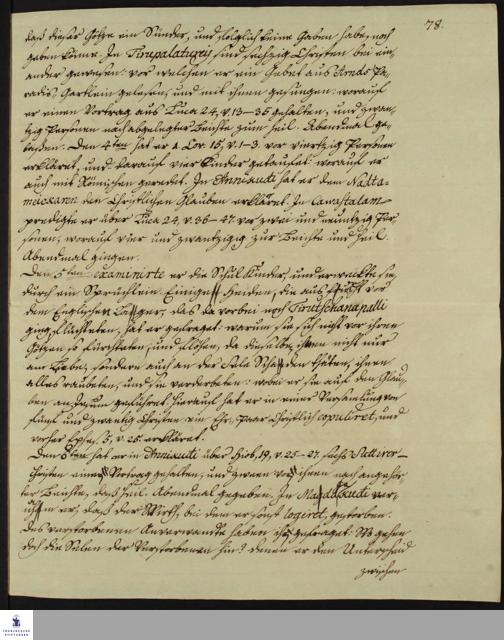 78.
daß dieser Götze ein Sünder, und folglich keine Gaben habe, noch
geben könne. In Tirupalaturei sind sechzig Christen bei ein-
ander gewesen: vor welchen er ein Gebet aus Arnds Pa-
radis Gärtlein gelesen, und mit ihnen gesungen: worauf
er einen Vortrag aus Luca 24, v. 13-35 gehalten, und zwan-
tzig Personen nach abgelegter Beichte zum heil. Abendmal ge-
laßen. Den 4ten hat er 1 Cor. 15, v. 1-3. vor viertzig Personen
erkläret, und darauf vier Kinder getaufet: worauf er
auch mit Römischen geredet. In Anneicudi hat er dem Natta-
meickaren den Christlichen Glauben erkläret. In Lawastalam
predigte er über Luca 24, v. 36-47. vor zwei und neuntzig Per-
sonen, worauf vier und zwantzig zur Beichte und heil.
Abendmal gingen.
Den 5ten examinirte er die Schul Kinder, und erweckte sie
durch ein Sprüchlein. Einige Heiden, die aus Furcht vor
dem Englischen Läger, das da vorbei nach Tirutschinapalli
ging, flüchteten, hat er gefraget: warum sie sich nicht vor ihren
Götzen so fürchteten, und flöhen, da dieselbe ihnen nicht nur
am Leibe, sondern auch an der Sele Schaden thäten, ihnen
alles raubeten, und sie verderbeten: wobei er sie auf den Glau-
ben an Jesum geführet. Hierauf hat er in einer Versamlung von
fünf und zwantzig Christen ein Ehe-Paar Christlich copuliret, und
vorher Ephes. 5, v. 25. erkläret.
Den 8ten hat er in Anneicudi über Hiob, 19, v. 25-27. sechs
Christen einen Vortrag gehalten, und zween von ihnen nach angehör-
ter Beichte, das heil. Abendmal gegeben. In
er, daß der Wirth, bei dem er sonst logiret, gestorben.
Des verstorbenen Anverwandte haben ihn gefraget: Wo gehen
doch die Selen der Verstorbenen hin? denen er den Unterscheid
zwischen
FRANCKESCHE STIFTUNGEN